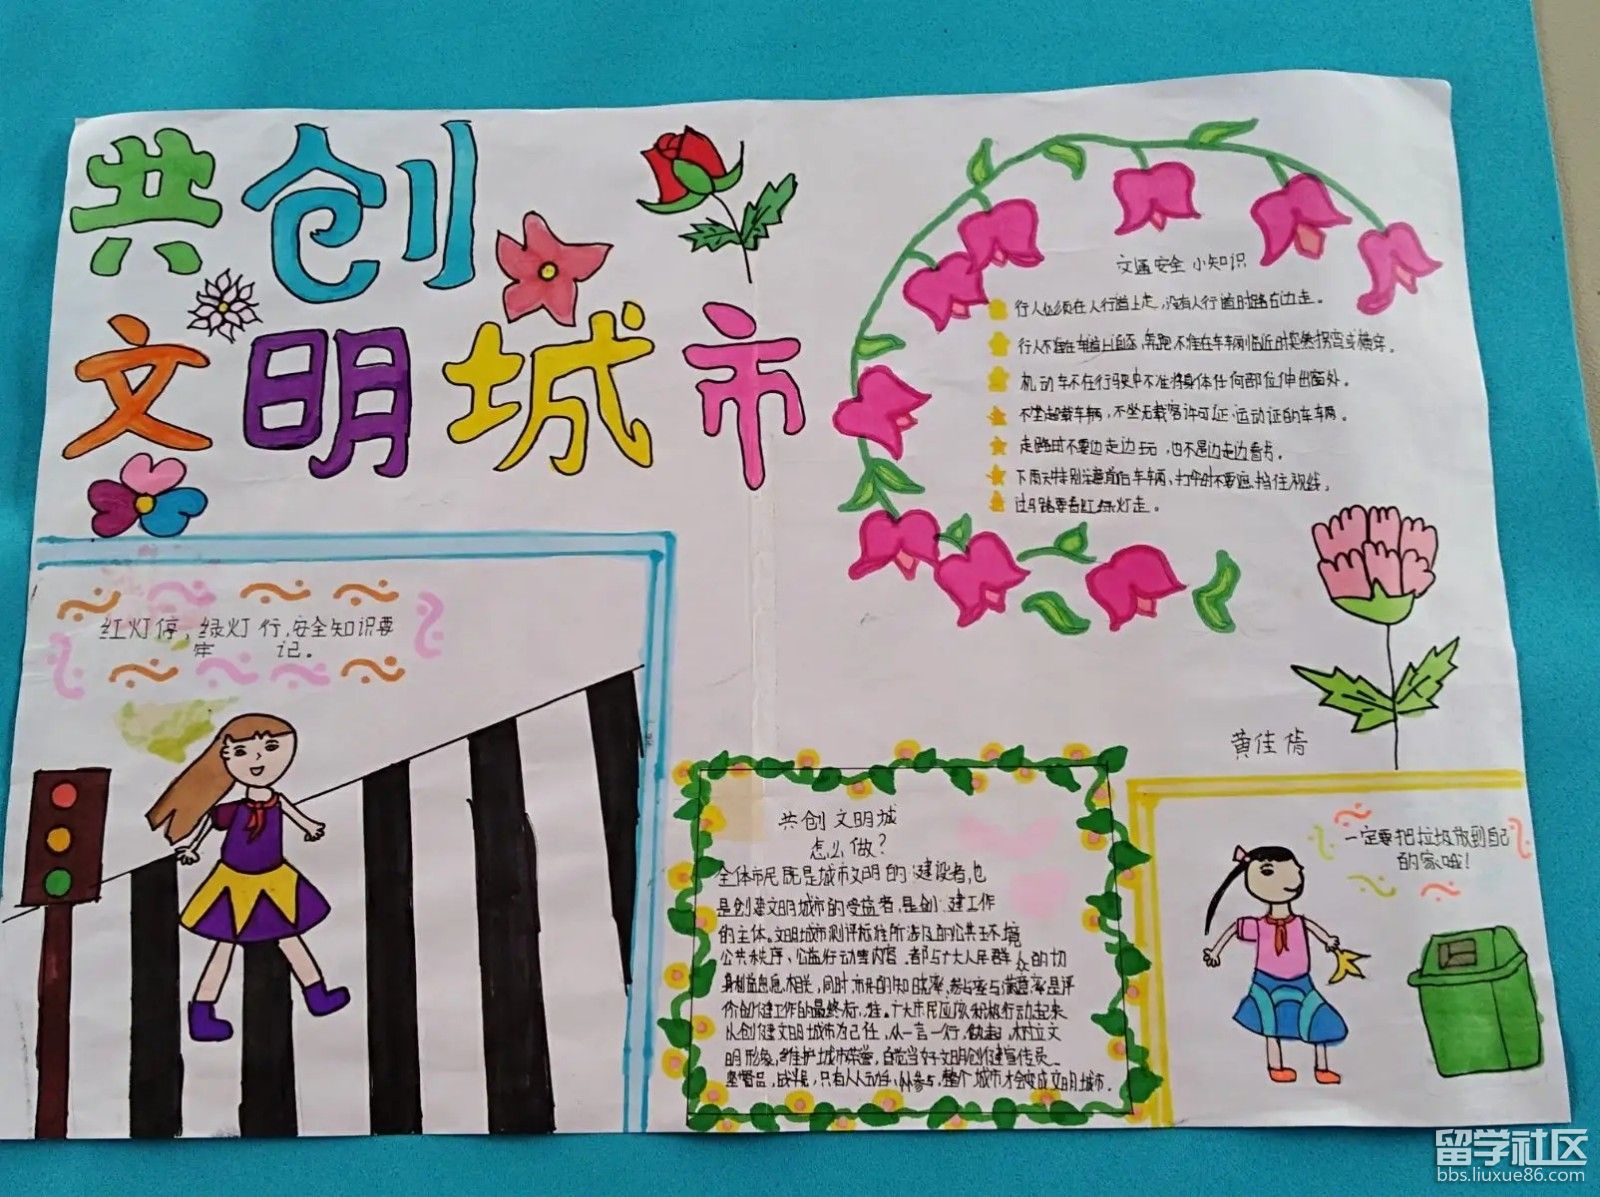 共创
文明城市
交通安全小知识
行人必须在人行道上走,没有人行道时路右边走。
行人不准在车道上追逐,奔跑不准在车辆临近时突然拐弯或横穿。
机动车不在行驶中不准将身体任何部位伸出窗外。
不坐超载车辆,不坐无载客许可证运动证的车辆。
走路时不要边走边玩,也不边走边看书。
下雨天特别注意前后车辆,打伞时不要挡住视线,
过马路要看红绿灯走。
红灯停,绿灯行,安全知识要
牢记。
黄佳
共创文明城
怎么做?
全体市民既是城市文明的建设者,也
是创建文明城市的受益者,是创建工作
的主体。文明城市测评标准所涉及的公共环境
公共秩序、公益行动等内容.都与广大人民群众的切
身利益息息相关,同时市民的知晓率,参与率与满意率是评
价创建工作的最终标准。广大市民应该积极行动起来
从创建文明城市为己任,从一言一行,做起,树立文
明形象,维护城市荣誉,自觉当好文明创建宣传员
监督员,战斗员,只有人人动手,人人参与,整个城市才会变成文明城市.
一定要把垃圾放到自己
的家哦!
留学社区
bbs.liuxue86.com